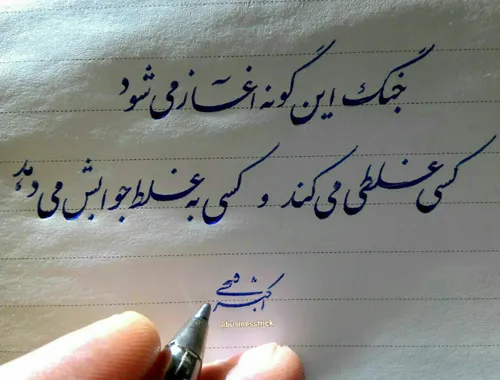 جنگ این گونه آغاز می شود
کسی غلطی می کند و کسی به غلط جوابش می دهد
اکبر فتحی
@businesstrick